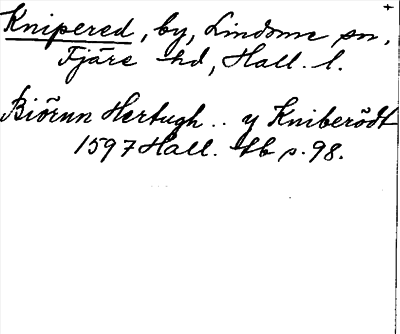 Knipered, by, Lindome sn,
Fjäre hd, Hall. l.
Biörun Hertugh .. y Kniberödt
1597 Hall. tb s. 98.